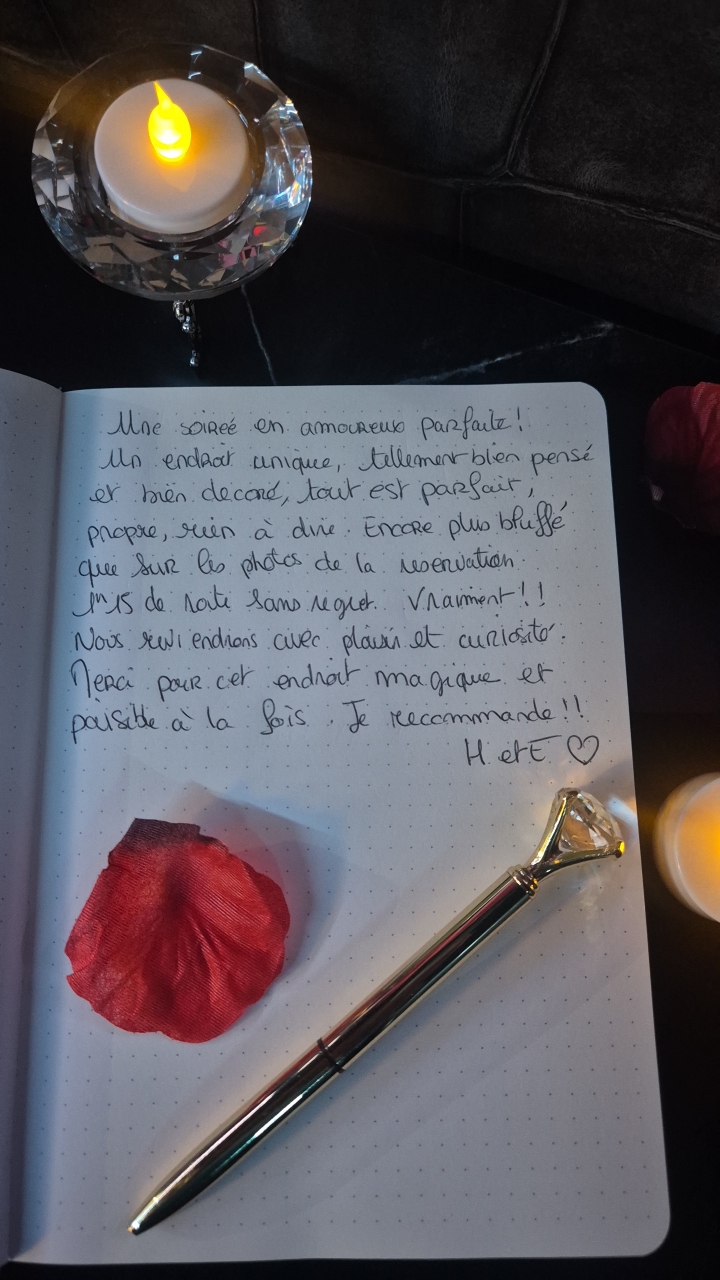 Une soireé en amoureux parfaite !
Un endroit unique, tellement bien pensé
et bien decoré, tout est parfait,
propre, rien à dire. Encore plus bluffé
que sur les photos de la reservation.
de route sans regret. Vraiment !!
Nous reviendrons avec plaisir et curiosité.
Merci pour cet endroit magique et
paisible à la fois. Je recommande !!
H. et E ♡